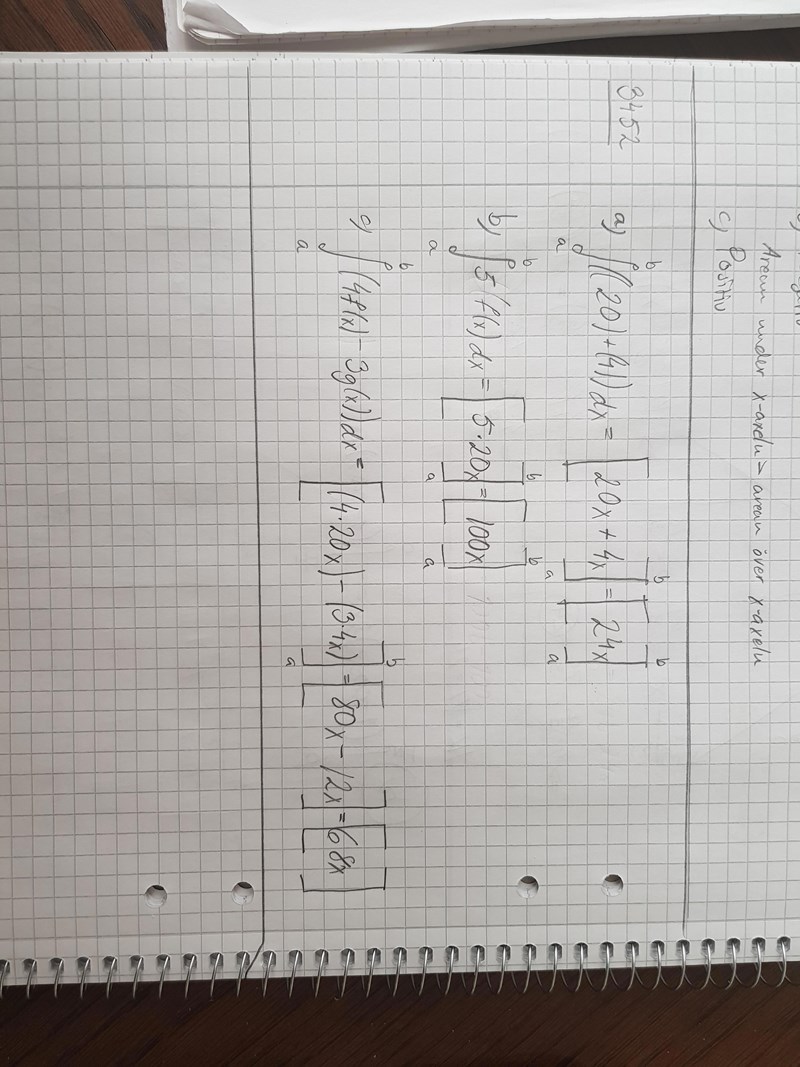 Arean under x-axeln > arean över x-axeln
c) Positiv
3452
a) ∫ₐᵇ((20)+(4))dx = [20x + 4x]ₐᵇ = [24x]ₐᵇ
b) ∫ₐᵇ 5 f(x)dx = [5·20x]ₐᵇ = [100x]ₐᵇ
c) ∫ₐᵇ(4f(x) - 3g(x))dx = [(4·20x) - (3·4x)]ₐᵇ = [80x - 12x] = [68x]